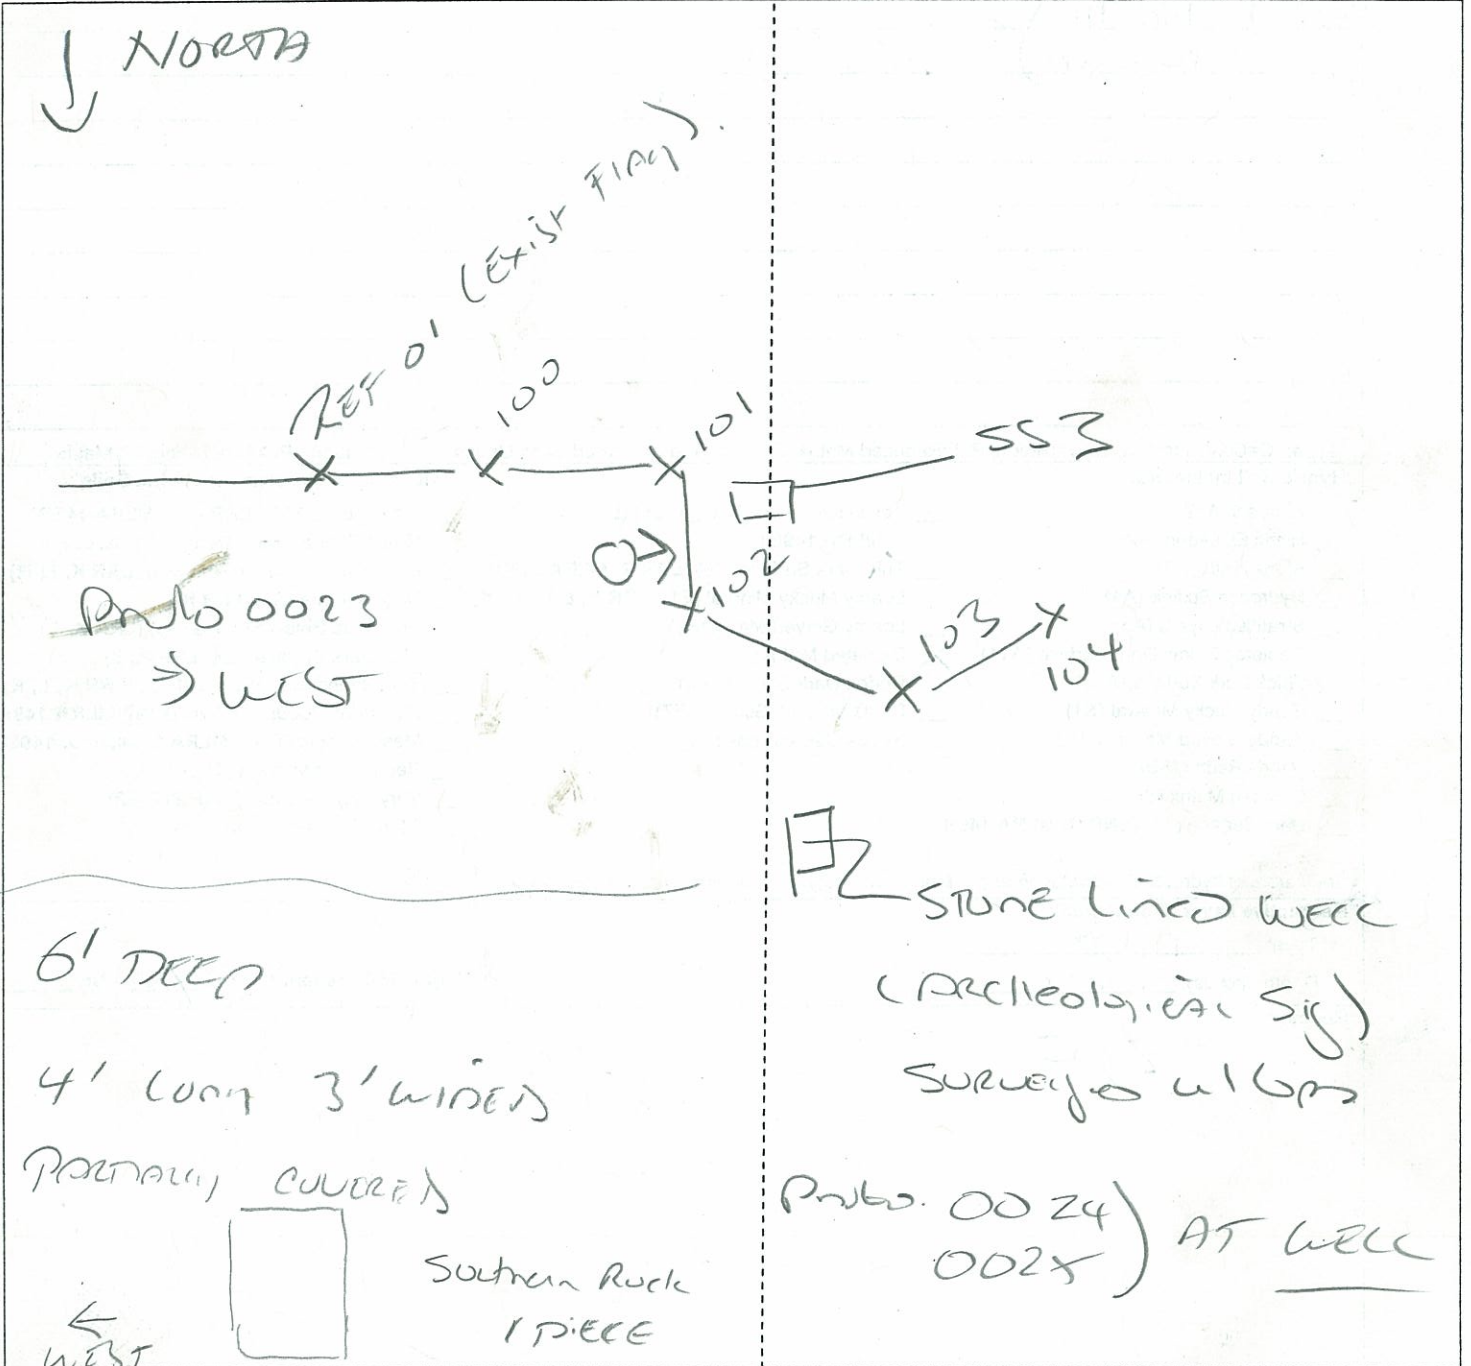 NORTH
REF 0' (EXIST FLAG).
100
101
SS3
102
103
104
Photo 0023
→ WEST
STONE LINED WELL
(ARCHEOLOGICAL SIG)
SURVEYED w/ GPS
Photo. 0024
0025
AT WELL
6' DEEP
4' LONG 3' WIDE
PARTIALLY COVERED
Southern Rock
1 PIECE
← WEST